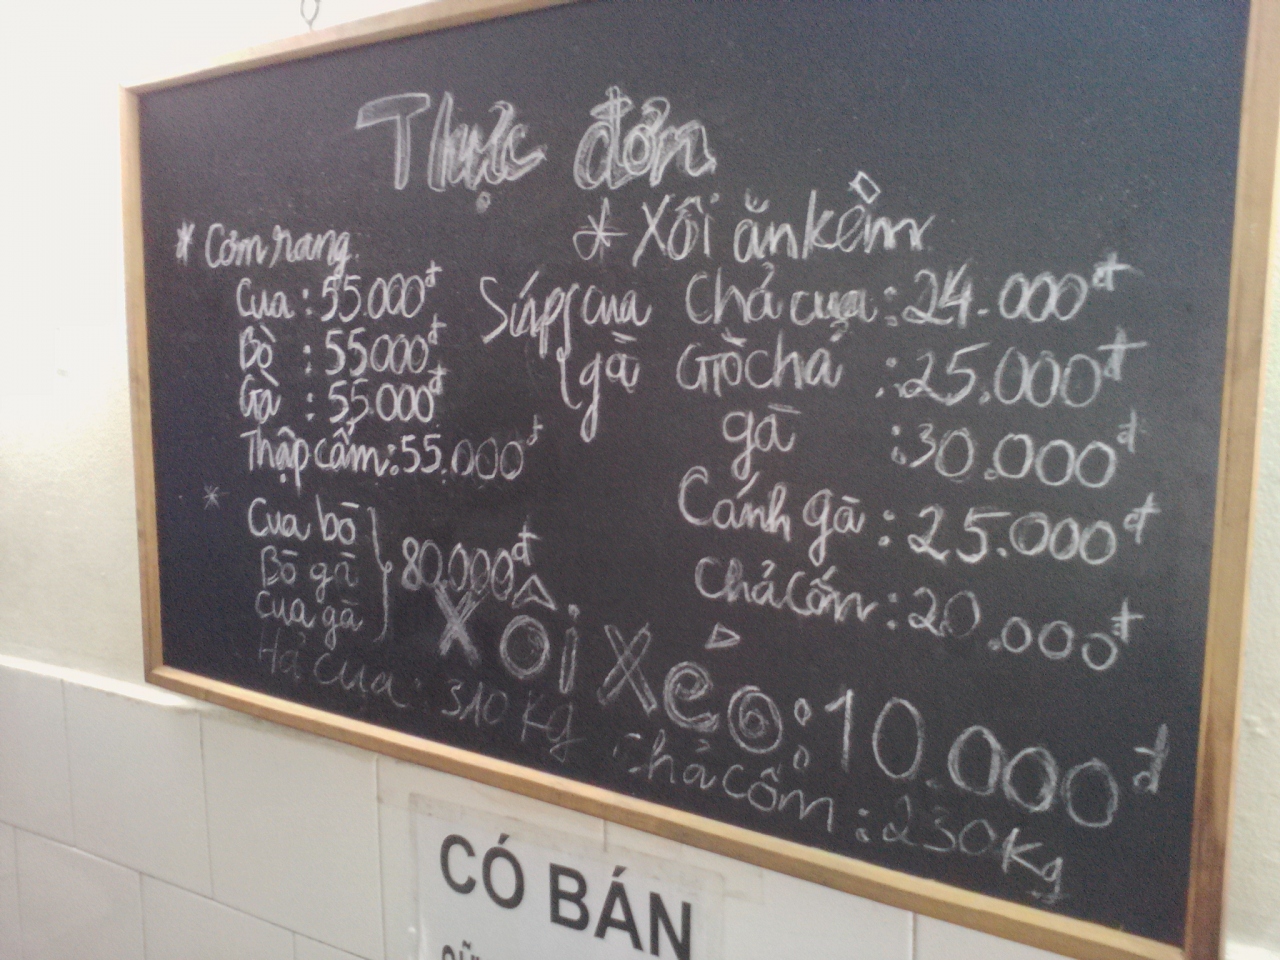 Thực đơn
* Cơm rang
Cua : 55.000đ
Bò : 55000đ
Gà : 55.000đ
Thập cẩm: 55.000đ
*
Cua bò
Bò gà
Cua gà
80.000đ
Súp { cua
gà
* Xôi ăn kèm
Chả cua : 24.000đ
Giò chả : 25.000đ
gà : 30.000đ
Cánh gà : 25.000đ
Chả cốm : 20.000đ
Xôi Xéo : 10.000đ
Hả cua : 310 Kg
Chả cốm : 230 Kg
CÓ BÁN